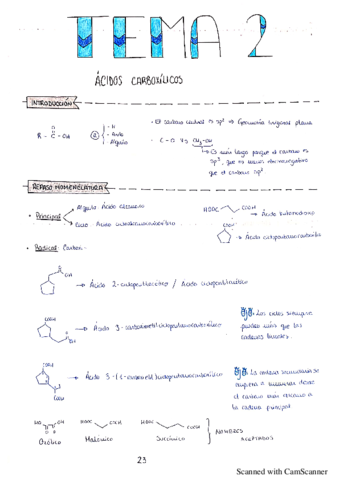 TEMA 2
ÁCIDOS CARBOXÍLICOS
INTRODUCCIÓN
R - C - OH
O
R
- H
- Arilo
- Alquilo
· El carbono carbonilo es sp² → Geometría trigonal plana
· C-O Vs CH₃-OH
→ Es más largo porque el carbono es
sp³, que es menos electronegativo
que el carbono sp²
REPASO NOMENCLATURA
· Principal
Alquilo: Ácido
Ciclo: Ácido
HOOC
COOH
→ Ácido
COOH
→ Ácido ciclopentanocarboxílico
· Radical: Carboxi-
O
OH
→ Ácido 2-ciclopentilacético / Ácido ciclopentilacético
COOH
→ Ácido 3-carboximetilciclopentanocarboxílico
O
OH
Los ciclos siempre
pueden más que las
cadenas lineales.
COOH
→ Ácido 3-(1-carboxietil)ciclopentanocarboxílico
COOH
La cadena
empieza a numerarse desde
el carbono más cercano a
la cadena principal
HO
O
O
OH
Oxálico
HOOC
COOH
Malónico
HOOC
COOH
Succínico
NOMBRES
ACEPTADOS
23
Scanned with CamScanner